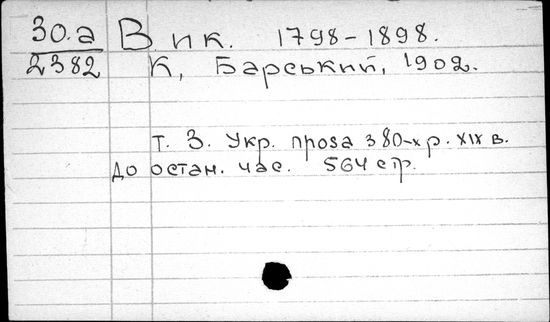 30.а Вік. 1798-1898.
2382 К, Барський, 1902.
т. 3. Укр. проза з 80-х р. XIX в.
до остан. час. 564 стр.